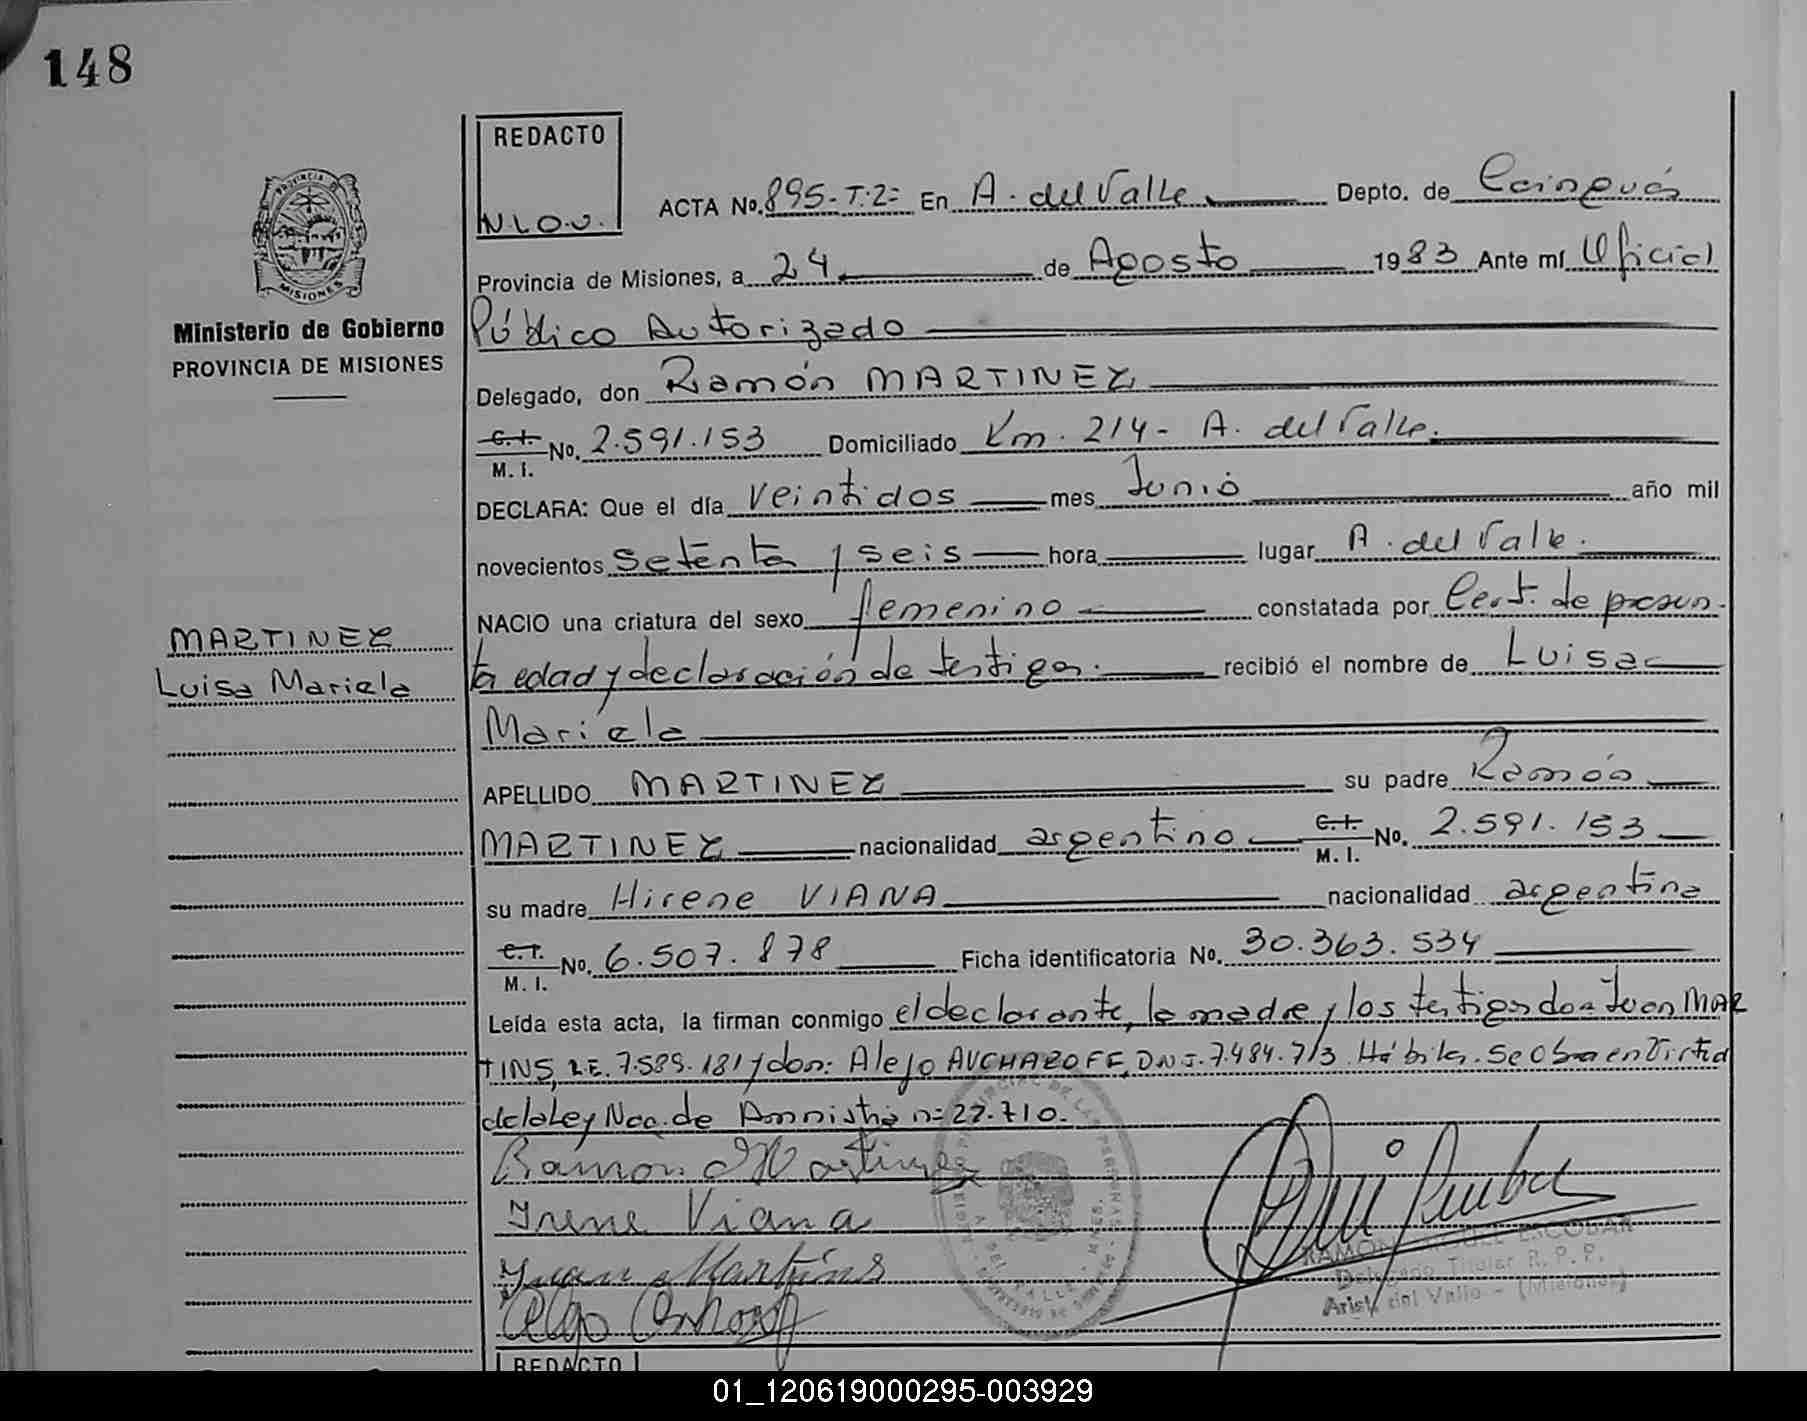 148
REDACTO
N.L.O.V.
ACTA No. 895-T.2= En A. del Valle Depto. de Cainguás
Provincia de Misiones, a 24 de Agosto 1983 Ante mí Oficial
Ministerio de Gobierno
PROVINCIA DE MISIONES
Público Autorizado
Delegado, don Ramón MARTINEZ
C.I. M.I. No. 2.591.153 Domiciliado Km. 214- A. del Valle.
DECLARA: Que el día veintidos mes Junio año mil
novecientos setenta y seis hora lugar A. del Valle.
NACIO una criatura del sexo femenino constatada por Cert. de presun-
MARTINEZ
Luisa Mariela
ta edad y declaración de testigos. recibió el nombre de Luisa
Mariela
APELLIDO MARTINEZ su padre Ramón
MARTINEZ nacionalidad argentino C.I. M.I. No. 2.591.153
su madre Hirene VIANA nacionalidad argentina
C.I. M.I. No. 6.507.878 Ficha identificatoria No. 30.363.534
Leída esta acta, la firman conmigo el declarante, la madre y los testigos don Juan MAR
TINS, L.E. 7.589.181 y don: Alejo AUCHAROFF, DNI. 7.484.713. Hábiles. Se Obra en Virtud
de la Ley Nac. de Amnistia n= 22.710.
Ramon Martinez
Irene Viana
Juan Martins
RAMON ESCOBAR
Delegado Titular R. P. P.
Arist. del Valle - (Misiones)
REDACTO
01_120619000295-003929